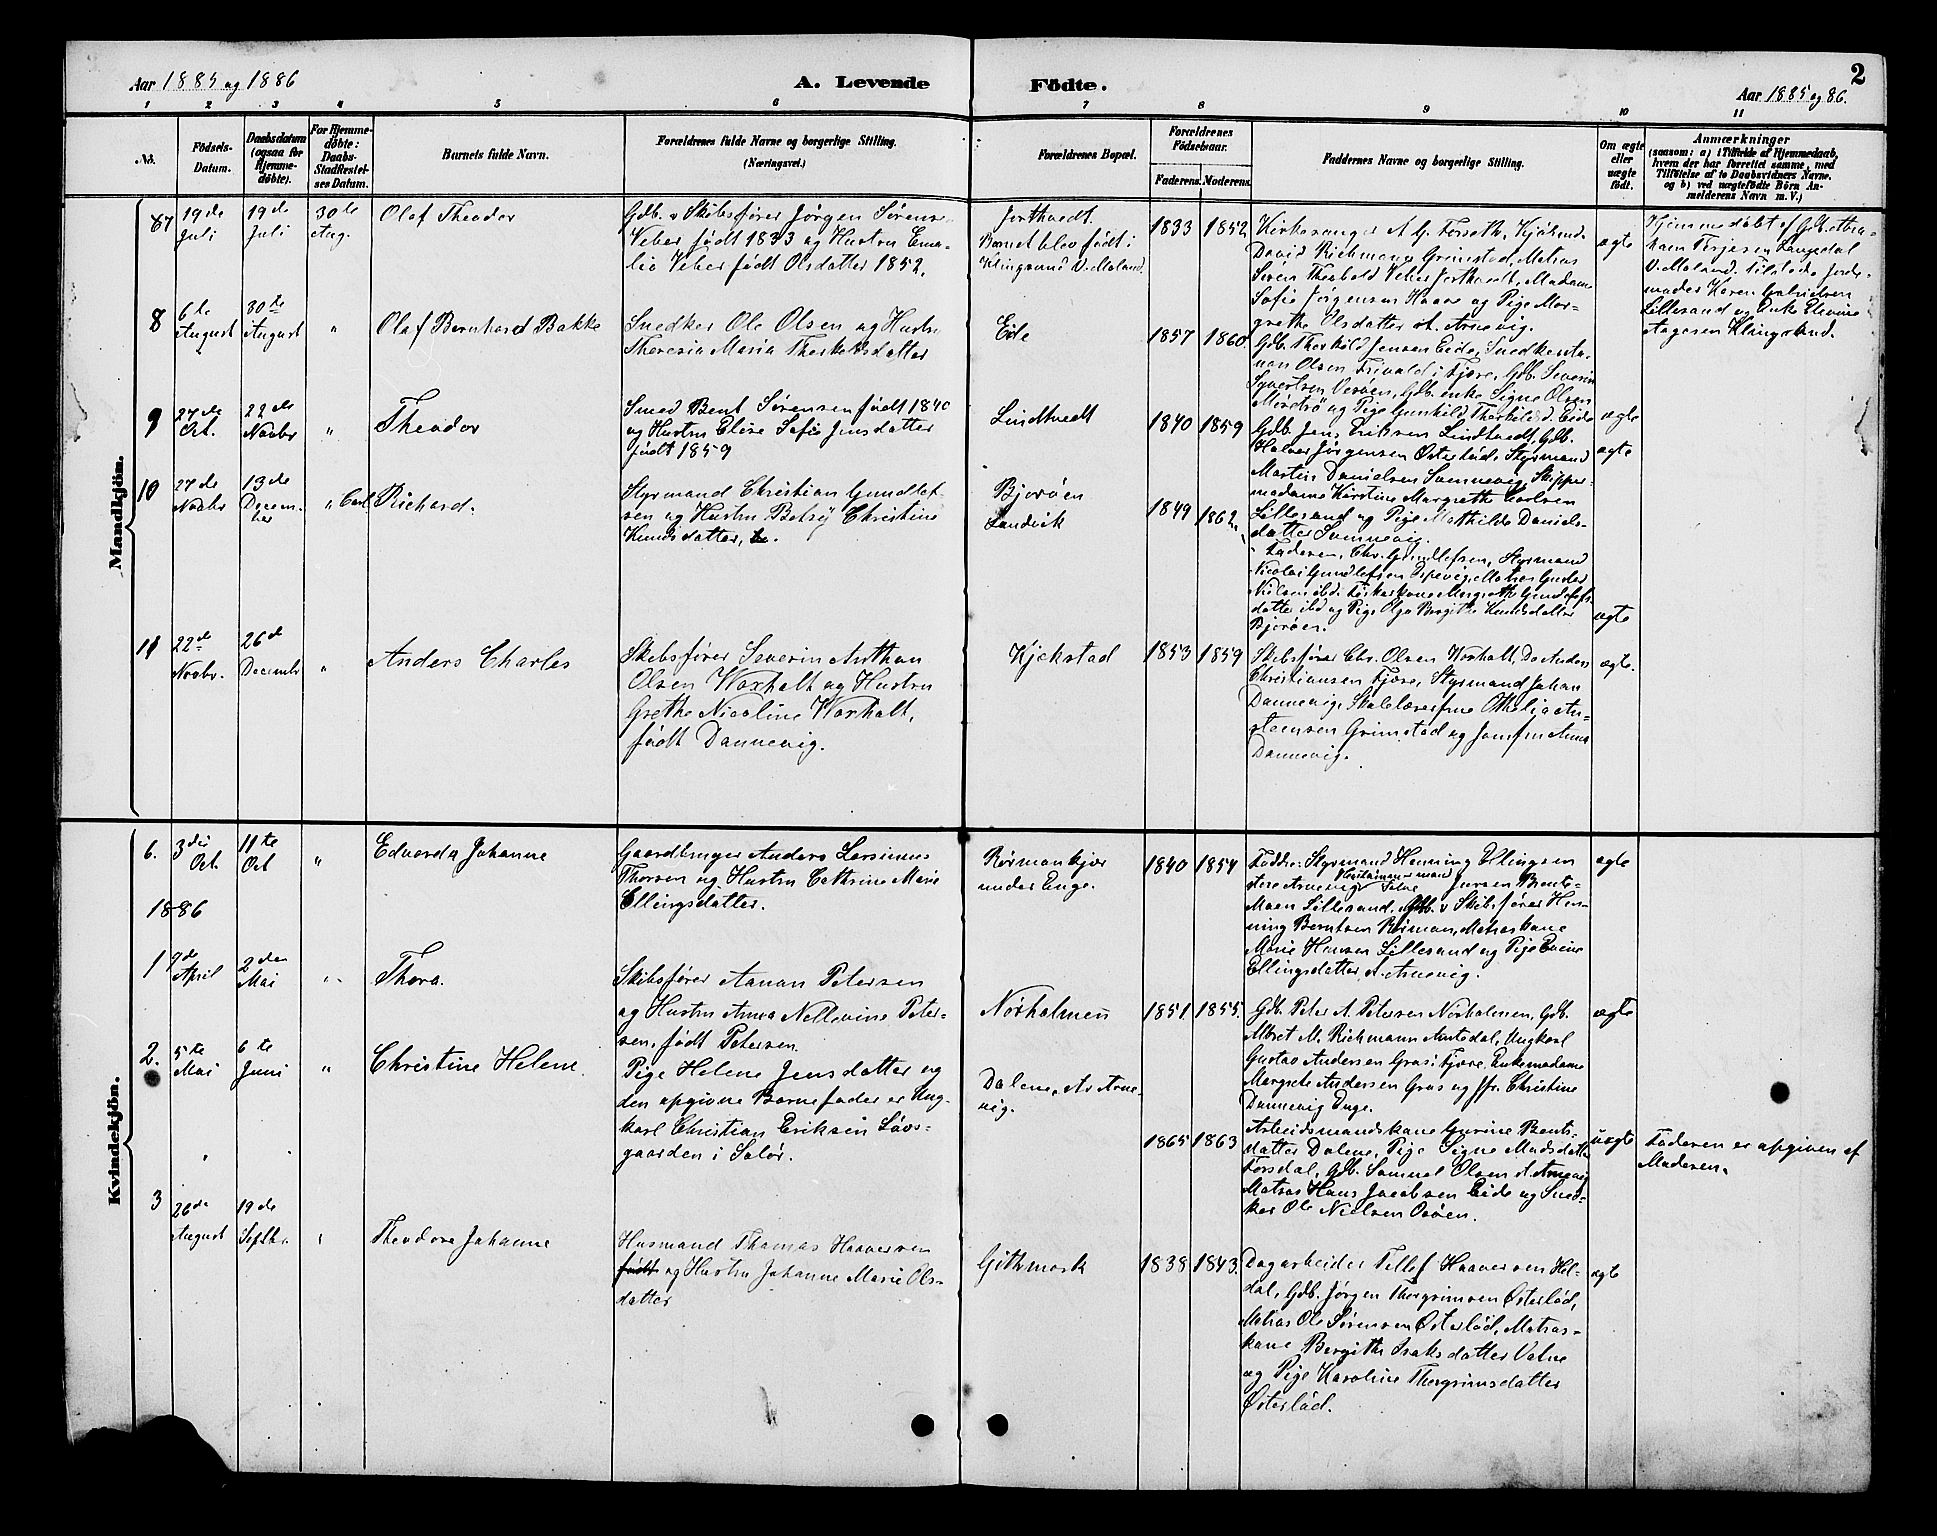 Aar 1885 og 1886
A. Levende
Födte.
2
Aar 1885 og 86.
1 2 3 4 5 6 7 8 9 10 11
No.
Födsels-
Datum.
Daabsdatum
(ogsaa for
Hjemme-
döbte).
For Hjemme-
döbte:
Daabs-
Stadfæstel-
ses Datum.
Barnets fulde Navn.
Forældrenes fulde Navne og borgerlige Stilling.
(Næringsvei.)
Forældrenes Bopæl.
Forældrenes
Födselsaar.
Faderens. Moderens.
Faddernes Navne og borgerlige Stilling.
Om ægte
eller
uægte
födt.
Anmærkninger
(saasom: a) i Tilfælde af Hjemmedaab,
hvem der har forrettet samme, med
Tilföielse af to Daabsvidners Navne,
og b) ved uægtefödte Börn An-
melderens Navn m. V.)
Mandkjön.
87
19de
Juli
19de
Juli
30te
Aug.
Olaf Theodor
Gdb. & Skibsfører Jørgen Sørens.
Veber født 1833 og Hustru Emi-
lie Veber født Olsdatter 1852.
Jorthvedt.
Barnet blev født i
Klingsund V. Moland.
1833 1852
Kirkesanger A. G. Forseth,
David Richmann Grimstad, Matros
Søren Theobald Veber Jorthvedt, Madame
Sofie Jørgensen Haave og Pige Mar-
grethe Olsdatter st. Arnevig.
ægte
Hjemmedøbt af Gdb. Abra-
ham Terjesen Langedal
V. Moland. Tilstede Jorde-
moder Karen Gabrielsen
Lillesand og Enke Elevine
Aagesen Klingsund.
8
6te
August
30te
August
"
Olaf Bernhard Bakke
Snedker Ole Olsen og Hustru
Theresia Maria Therkelsdatter
Eide
1857 1860
Gdb. Therkild Jensen Eide, Snedker
Olsen Trivald i Fjære, Gdb. Severin
Syvertsen Vesøen, Gdb. enke Signe Olsen
og Pige Gunhild Therkilsd. Eide
ægte
9
27de
Oct.
22de
Novbr
"
Theodor
Smed Bent Sørensen født 1840
og Hustru Elise Sofie Jensdatter
født 1859
Lindtvedt
1840 1859
Gdb. Jens Eriksen Lindtvedt, Gdb.
Halvor Jørgensen Østerhud, Styrmand
Martin Danielsen Sømmevig, Skipper-
madame Kirstine Margrethe Carlsen
Lillesand og Pige Mathilde Daniels-
datter Sømmevig.
ægte
10
27de
Novbr
13de
Decem-
ber
"
Carl Richard.
Styrmand Christian Gundlef-
sen og Hustru Betsy Christine
Knudsdatter,
Bjorøen
Landvik
1849 1862.
Faderen, Chr. Gundlefsen, Styrmand
Nicolai Gundlefsen Ribevig, Matros Gunder
Nielsen ibd. Fiskerkone Margrethe Gundlefs-
datter ibd og Pige Olga Bergithe Knudsdatter
Bjorøen.
ægte
11
22de
Novbr.
26de
Decembr
"
Anders Charles
Skibsfører Severin Anthon
Olsen Woxholt og Hustru
Grethe Nicoline Woxholt,
født Dannevig.
Kjekstad
1853 1859
Skibsfører Chr. Olsen Woxholt, Do Anders
Christiansen Fjære, Styrmand Johan
Dannevig, Skolelærerfrue Othelia Au-
stensen Grimstad og Jomfru Anna
Dannevig.
ægte.
Kvindekjön.
6.
3die
Oct.
11te
Oct
"
Edvarda Johanne
Gaardbruger Anders Larsinius
Thorsen og Hustru Cathrine Marie
Ellingsdatter.
Rørmonkjær
under Enge.
1840 1854
Faddre: Styrmand Henning Ellingsen
Arnevig, Jensen Bente-
Moen Lillesand, Gdb. & Skibsfører Hen-
ning Berntsen Roiman, Matroskone
Marie Hansen Lillesand og Pige
Ellingsdatter A. Arnevig.
ægte
1886
1
9de
April
2den
Mai
"
Thora.
Skibsfører Aanon Petersen
og Hustru Anna Nellevine Peter-
sen, født Petersen
Nørholmen
1851. 1855.
Gdb. Peter A. Petersen Nørholmen, Gdb.
Albret M. Richmann Amtedal, Ungkarl
Gustav Andersen Gros i Fjære, Enkemadame
Margrete Andersen Gros og Jfr. Christine
Dannevig Enge.
ægte
2.
5te
Mai
6te
Juni
"
Christine Helene.
Pige Helene Jensdatter og
den opgivne Barnefader er Ung-
karl Christian Eriksen Løvs-
gaarden i Solør.
Dalene, As Arne-
vig.
1865 1863
Arbeidsmandskone Gurine Bents-
datter Dalene, Pige Signe Madsdatter
Forsdal, Gdb. Samuel Olsen A. Arnevig
Matros Hans Jacobsen Eide og Sned-
ker Ole Nielsen Osøen.
uægte
Faderen er opgiven af
Moderen.
3
26de
August
19de
Septbr.
"
Theodore Johanne
Husmand Thomas Haaversen
født og Hustru Johanne Marie Ols-
datter
Githmark
1838 1843.
Dagarbeider Tellef Haaversen Hel-
dal, Gdb. Jørgen Thorgrimsen Østerlød,
Matros Ole Sørensen Østerlød, Matros-
kone Bergithe Isaksdatter Valne
og Pige Karoline Thorgrimsdatter
Østerlød.
ægte